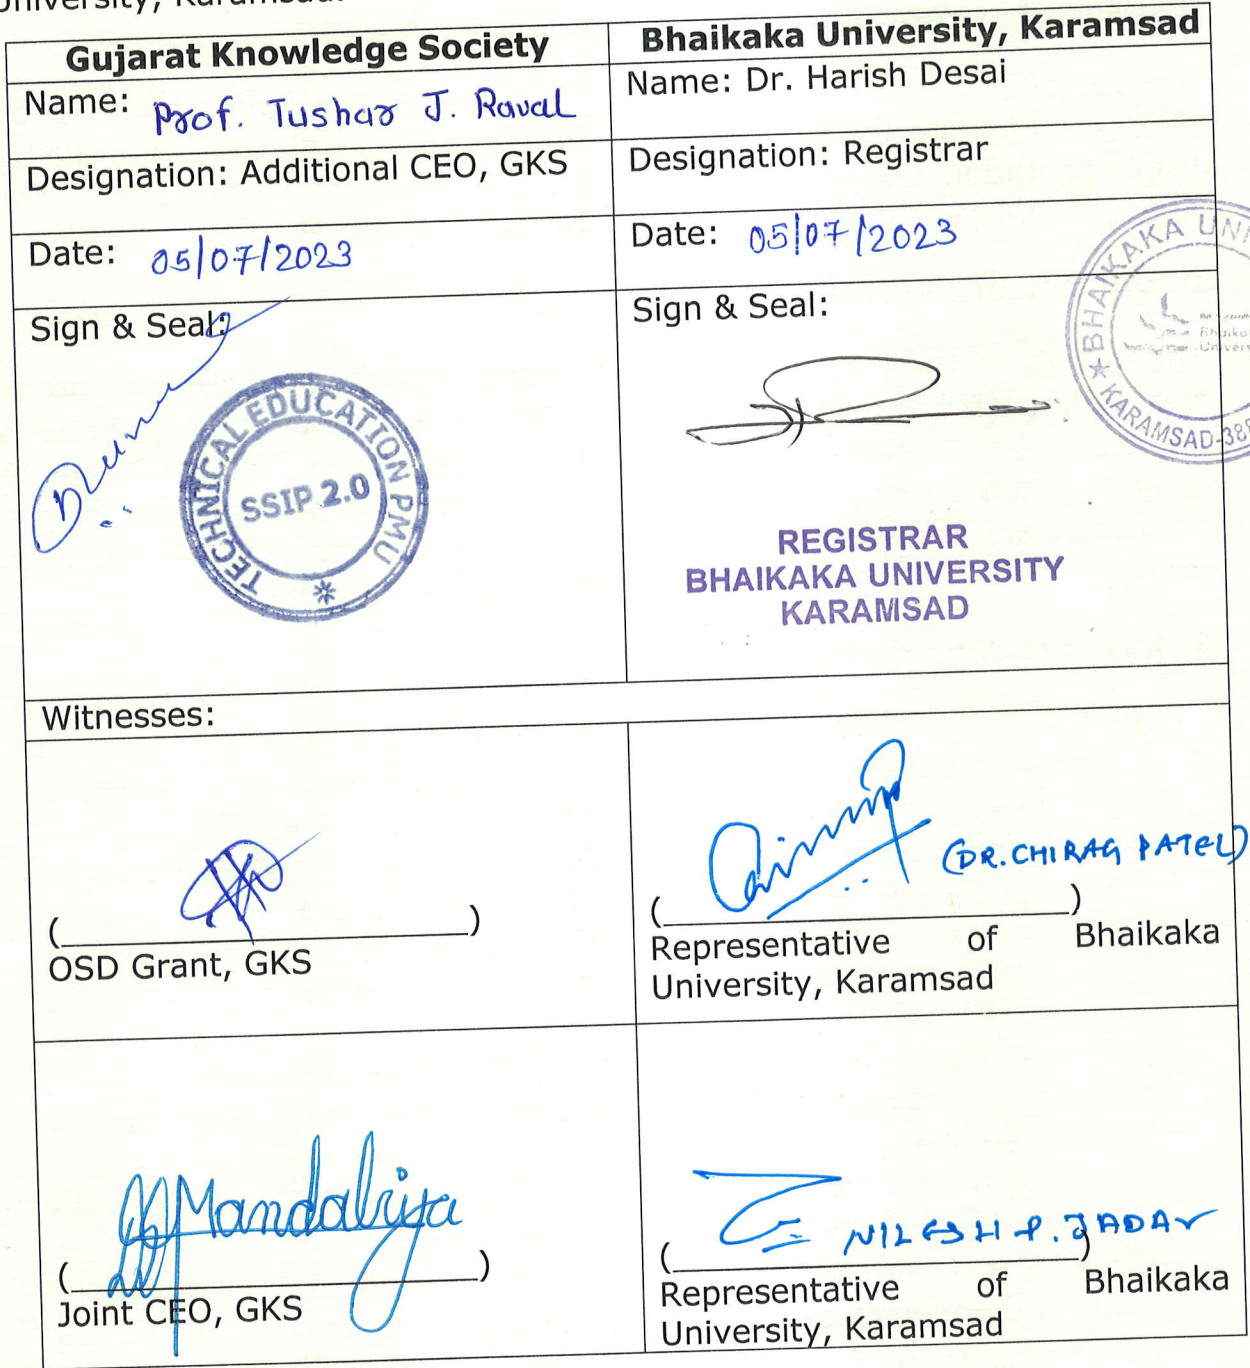 University, Karamsad.
Gujarat Knowledge Society
Bhaikaka University, Karamsad
Name: Prof. Tushar J. Raval
Name: Dr. Harish Desai
Designation: Additional CEO, GKS
Designation: Registrar
Date: 05/07/2023
Date: 05/07/2023
Sign & Seal:
TECHNICAL EDUCATION PMU
SSIP 2.0
Sign & Seal:
BHAIKAKA UNI
KARAMSAD-388
REGISTRAR
BHAIKAKA UNIVERSITY
KARAMSAD
Witnesses:
(____________________)
OSD Grant, GKS
(DR. CHIRAG PATEL)
(____________________)
Representative of Bhaikaka
University, Karamsad
Mandaliya
(____________________)
Joint CEO, GKS
NILESH P. JADAV
(____________________)
Representative of Bhaikaka
University, Karamsad